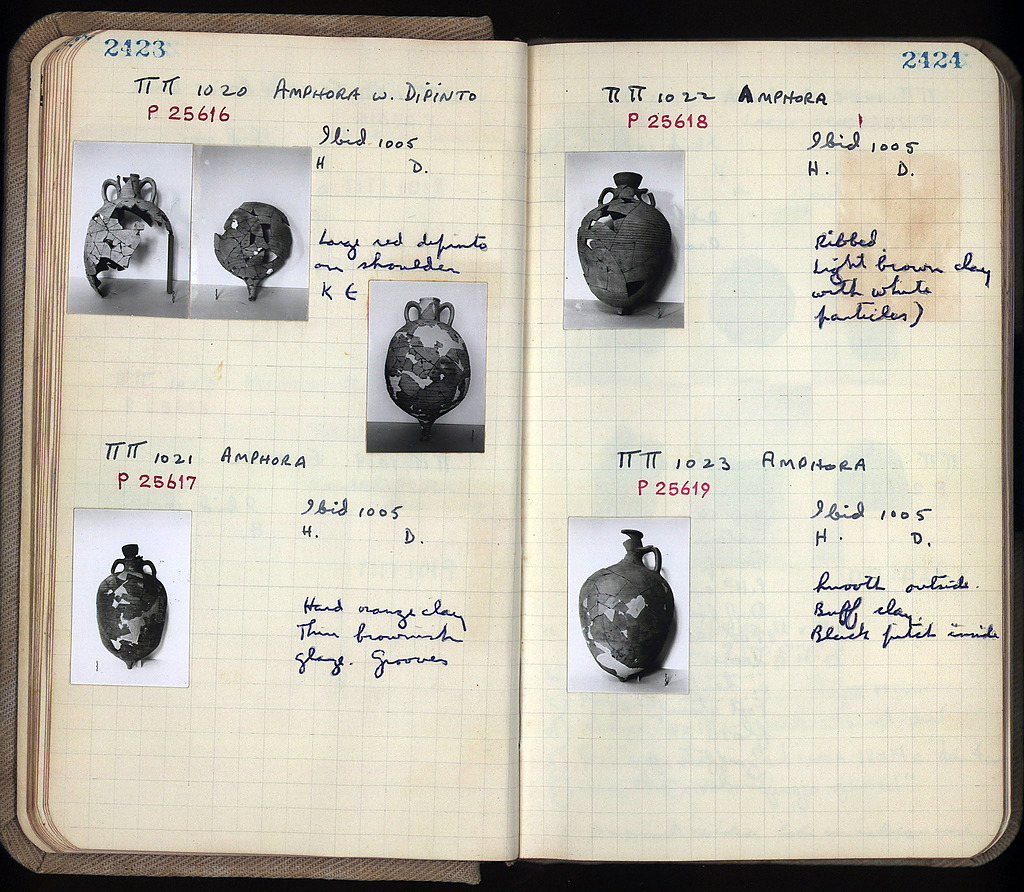 2423
ΠΠ 1020 AMPHORA W. DIPINTO
P 25616
Ibid 1005
H D.
Large red dipinto
on shoulder
K E
ΠΠ 1021 AMPHORA
P 25617
Ibid 1005
H. D.
Hard orange clay
Thin brownish
glaze. Grooves
2424
ΠΠ 1022 AMPHORA
P 25618
Ibid 1005
H. D.
Ribbed
Light brown clay
with white
particles)
ΠΠ 1023 AMPHORA
P 25619
Ibid 1005
H. D.
Smooth outside.
Buff clay.
Black pitch inside